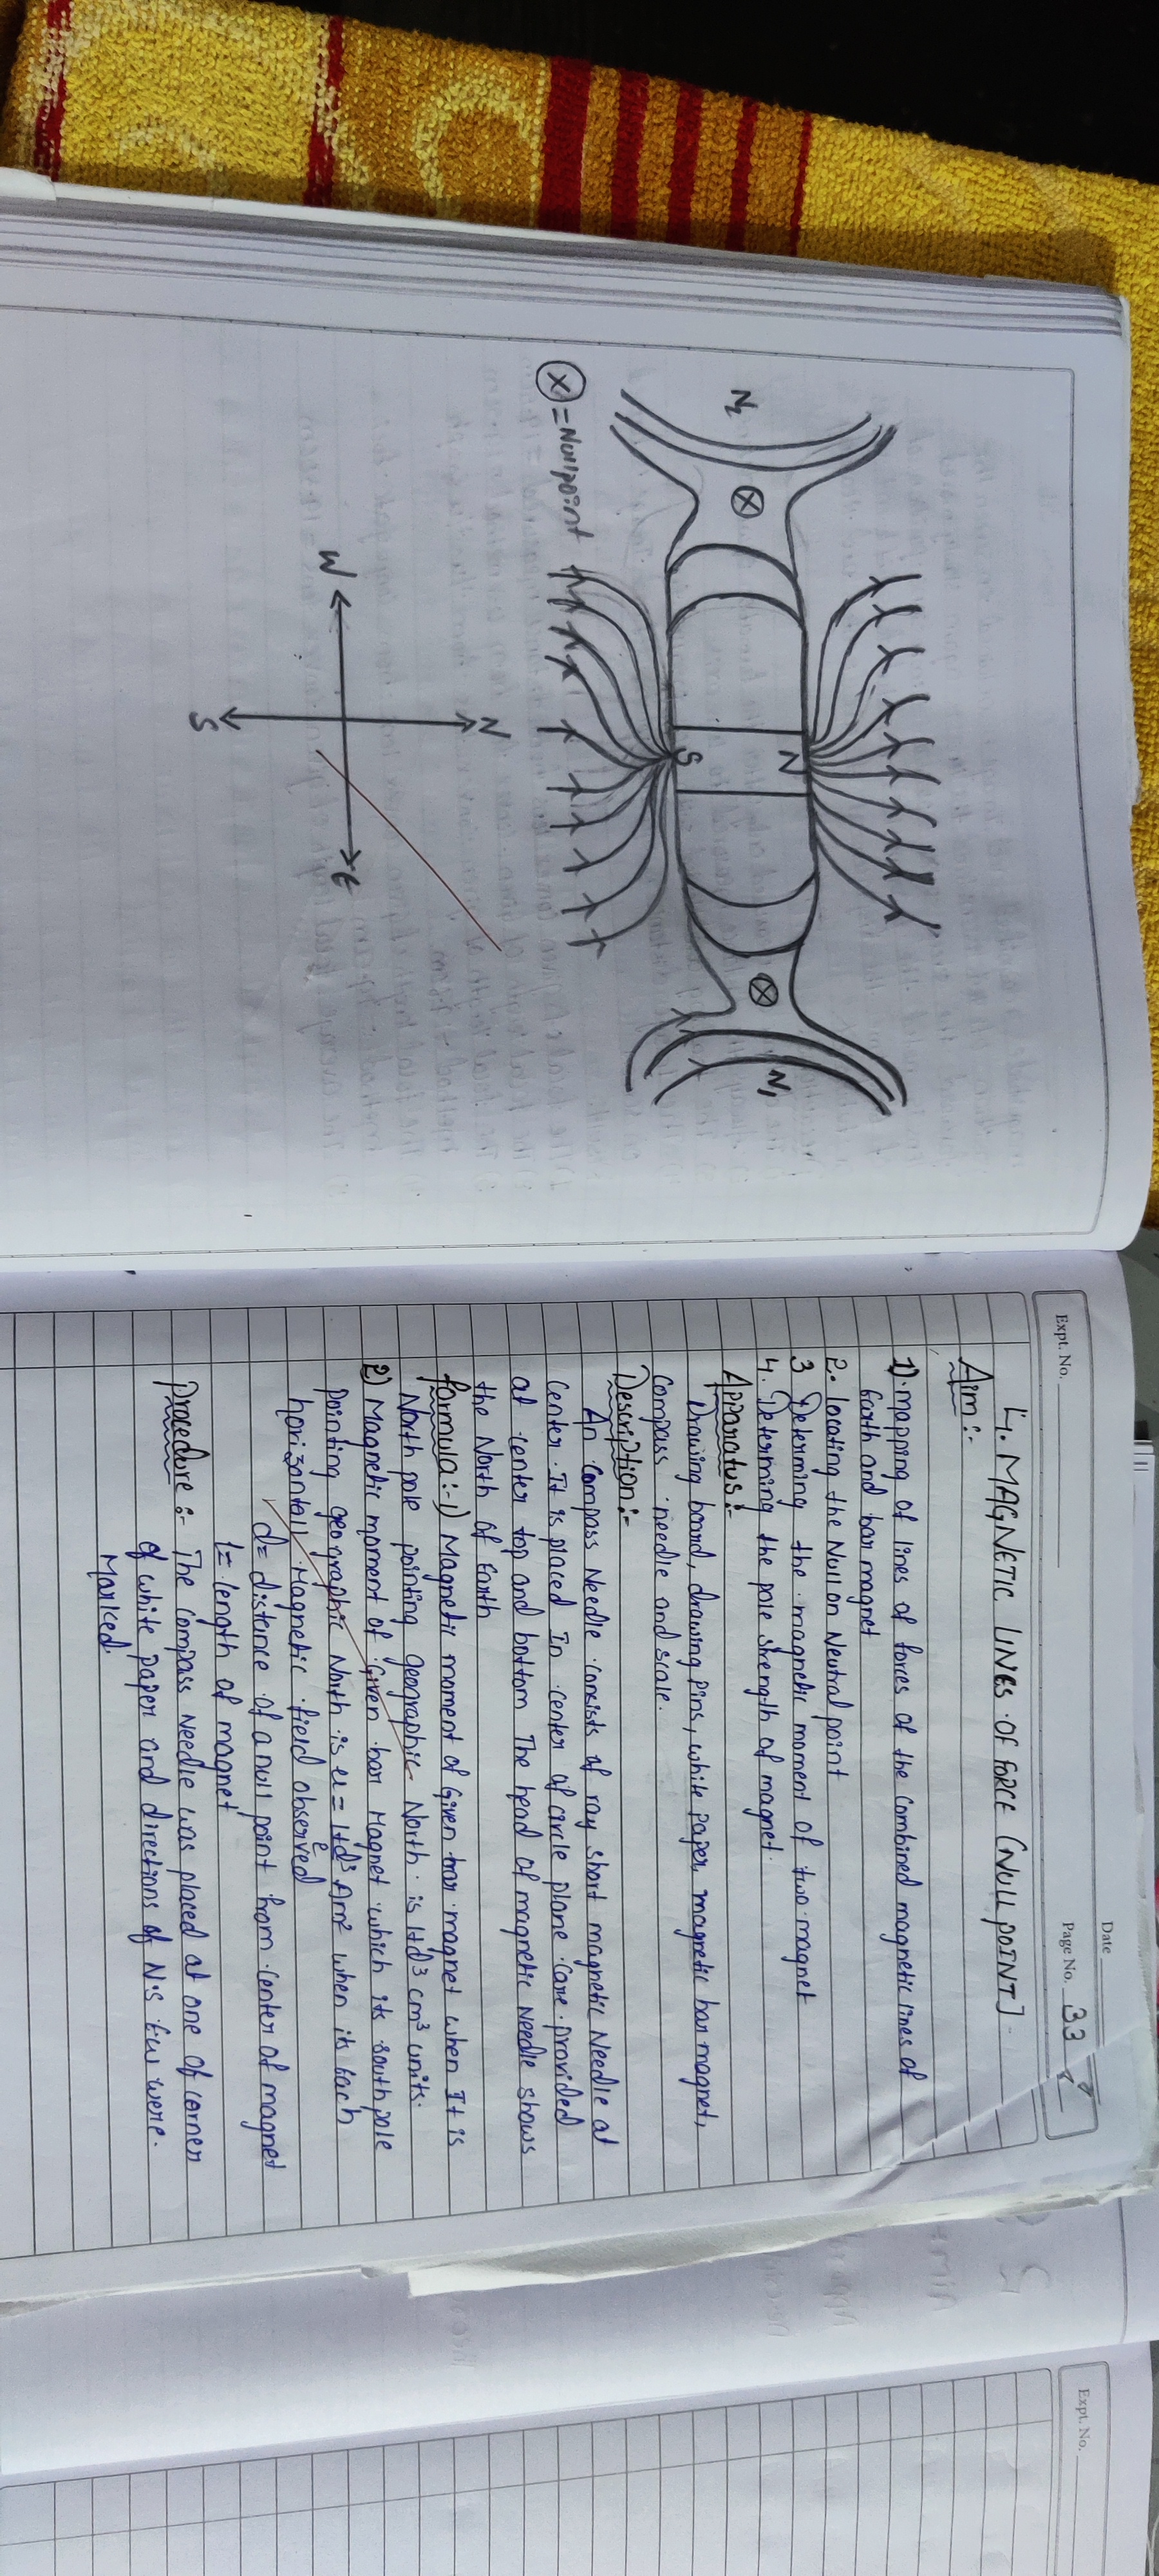 N₂
N
N₁
S
(X) = Null point
N
W
E
S
Date
Expt. No.
Page No. 33
4. MAGNETIC LINES OF FORCE (NULL POINT]
Aim :-
1). mapping of lines of forces of the combined magnetic lines of
Earth and bar magnet
2. locating the Null on Neutral point
3 Determing the magnetic moment of two magnet
4. Determing the pole strength of magnet.
Apparatus:-
Drawing board, drawing pins, white paper, magnetic bar magnet,
Compass needle and scale.
Description:-
An Compass Needle consists of ray short magnetic Needle at
center. It is placed In center of circle plane Care provided
at center top and bottom The head of magnetic Needle shows
the North of Earth
formula :- 1) Magnetic moment of Given bar magnet when It is
North pole pointing Geographic North is Hd³ cm³ units.
2) Magnetic moment of Given bar Magnet which its south pole
pointing geographic North is = Hd³ Am² when its Each
horizontall Magnetic field observed
d = distance of a null point from center of magnet
l = length of magnet
Procedure :- The Compass Needle was placed at one of corner
of white paper and directions of N.S E.W were.
Marked.
Expt. No.